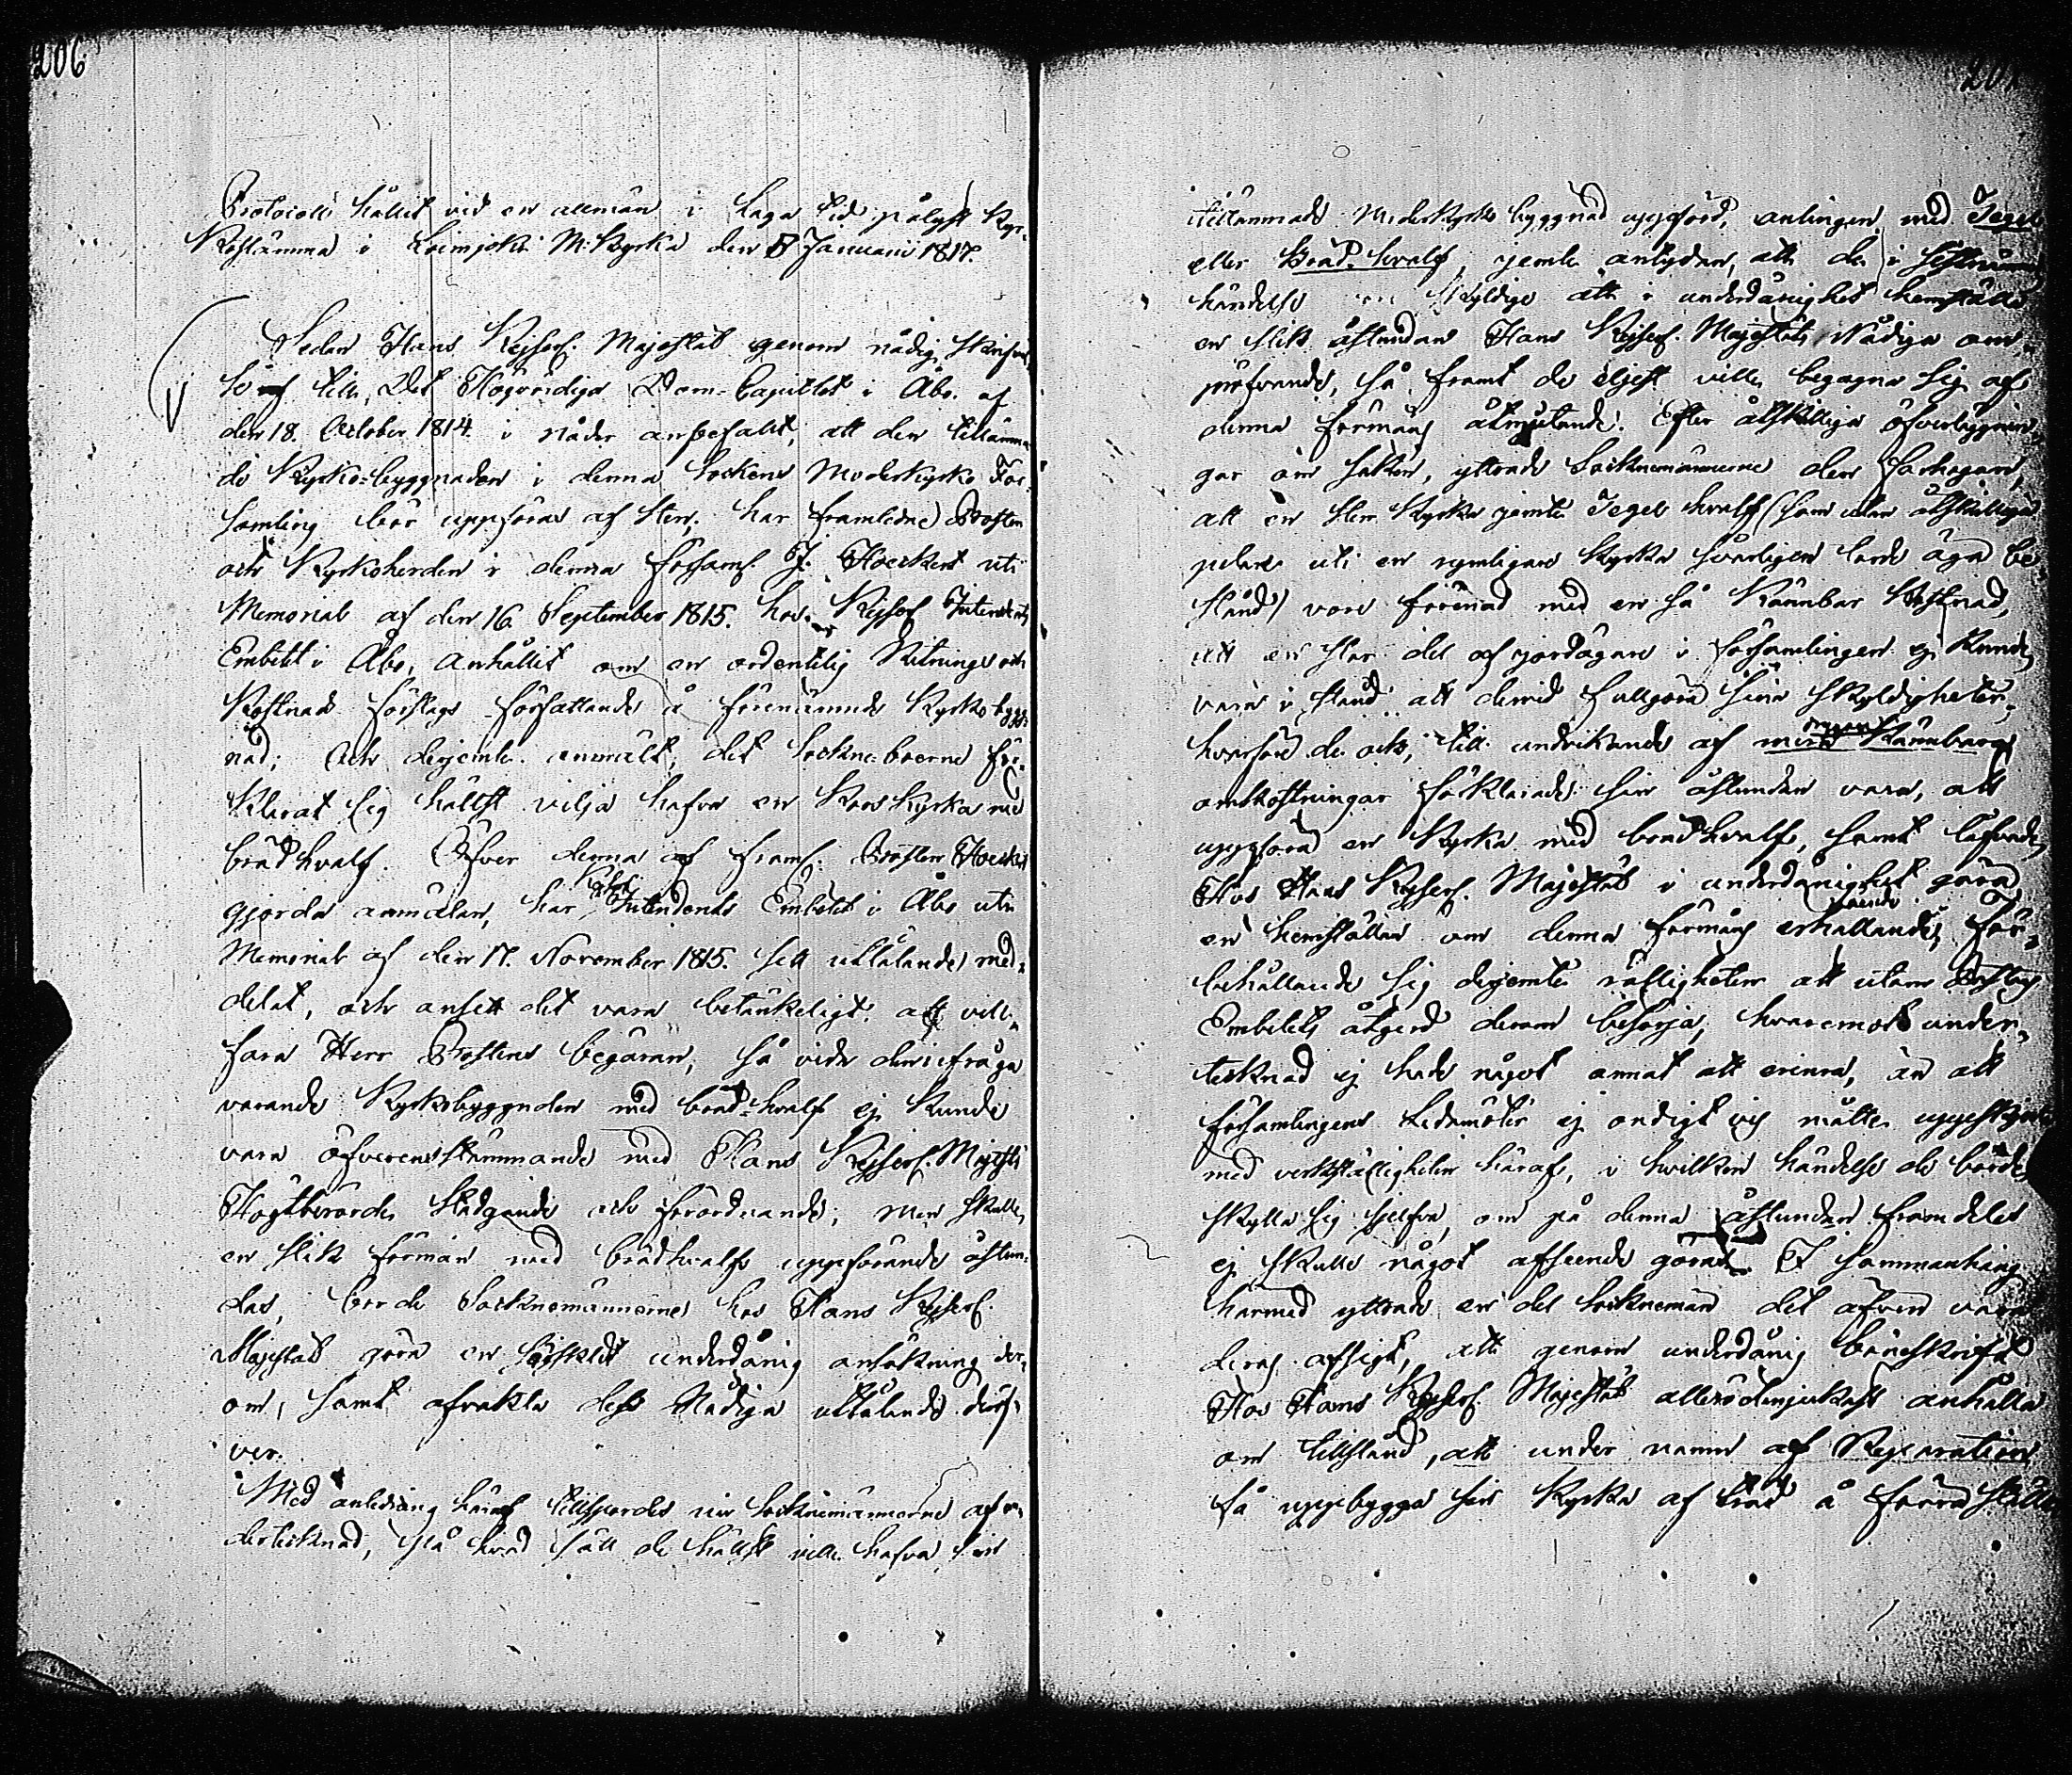 206
Protocoll hållit vid en allmän i laga tid pålyst Kyr-
kostämma i Loimjoki M. Kyrka den 8 Januarii 1817.
Sedan Hans Kejserl. Majestät genom nådig Skrifvel-
se till Det Högvördiga Dom-Capitlet i Åbo af
den 18. October 1814. i nåder anbefalt, att den tillämna-
de Kyrko-byggnaden i denna Sockens Moderkyrko För-
samling bör uppföras af Sten; har framledne Prosten
och Kyrkoherden i denna Församl. J. Hoeckert uti
Memorial af den 16 September 1815. hos Kejserl Intendents
Embetet i Åbo, anhållit om en ordentelig Ritnings och
Kostnads förslags författande å förenämnde Kyrko bygg-
nad; Och derjemte anmält, det Sockne-boerne för-
klarat sig hällst vilja hafva en Kors Kyrka med
brädhvalf. Öfver denna af framl. Prosten Hoeckert
gjorda anmälan, har Kejserl Intendents Embetet i Åbo uti
Memorial af den 17. November 1815. sitt utlåtande med-
delat, och ansett det vara betänkeligt att vill-
fara Herr Prostens begäran, så vida den i fråga
varande Kyrkobyggnden med bräd-hvalf ej kunde
vara öfverensstämmande med Hans Kejserl. Majestäts
Högtberörde Stadgande och förordnande; men skulle
en slik förmån med brädhvalfs uppförande åstun-
das, borde Socknemännerne hos Hans Kejserl.
Majestät göra en särskildt underdånig ansökning der-
om, samt afvakta dess Nådiga utlåtande deröf-
ver.
Med anledning häraf tillspordes nu Socknemännerne af un-
dertecknad, på hvad sätt de hällst ville hafva sin
tillämnade Moderkyrko byggnad uppförd, antingen med Tegel
eller Bräd. hvalf, jemte antydan, att de i sistnämnde
händelse en skyldige att i underdånighet hemställa
en slik åstundan Hans Kejserl. Majestäts Nådiga om-
pröfvande, så framt de eljest ville begagna sig af
denna förmåns åtnjutande. Efter åtskilliga öfverläggnin-
gar om saken, yttrade Socknemännerne dem förhogar,
att en Sten Kyrka jemte Tegel hvalf (som utan åtskillige
pelare uti en rymligare Kyrka svårligen torde äga be-
stånd) vore förenad med en så kännbar kostnad,
att en stor del af jordägare i församlingen ej kunde
vara i stånd att dervid fullgöra sina skyldigheter,
hvarföre de ock, till undvikande af mera kännbara
omkostningar förklarade sin åstundan vara, att
uppföra en Kyrka med brädhvalf, samt lofvade
Hos Hans Kejserl. Majestät i underdånighet göra
en hemställan om denna förmåns erhållande; för-
behållande sig derjemte rättigheten att utom Prosteg
Embetets åtgerd derom besörja; hvaremot under-
tecknad ej hade något annat att erinra, än att
församlingens Ledamöter ej ondigt vis måtte uppskjuta
med verkställigheten häraf, i hvilken händelse de borde
skylla sig sjelfva, om på denna åstundan framdeles
ej skulle något afseende göras. I sammanhang
härmed yttrade en del Socknemän det äfven vara
deras afsigt, att genom underdånig böneskrift
Hos Hans Kejserl. Majestät allerödmjukast anhålla
om tillstånd, att under namn af Reparation
få uppbygga sin Kyrka af träd å förra stället